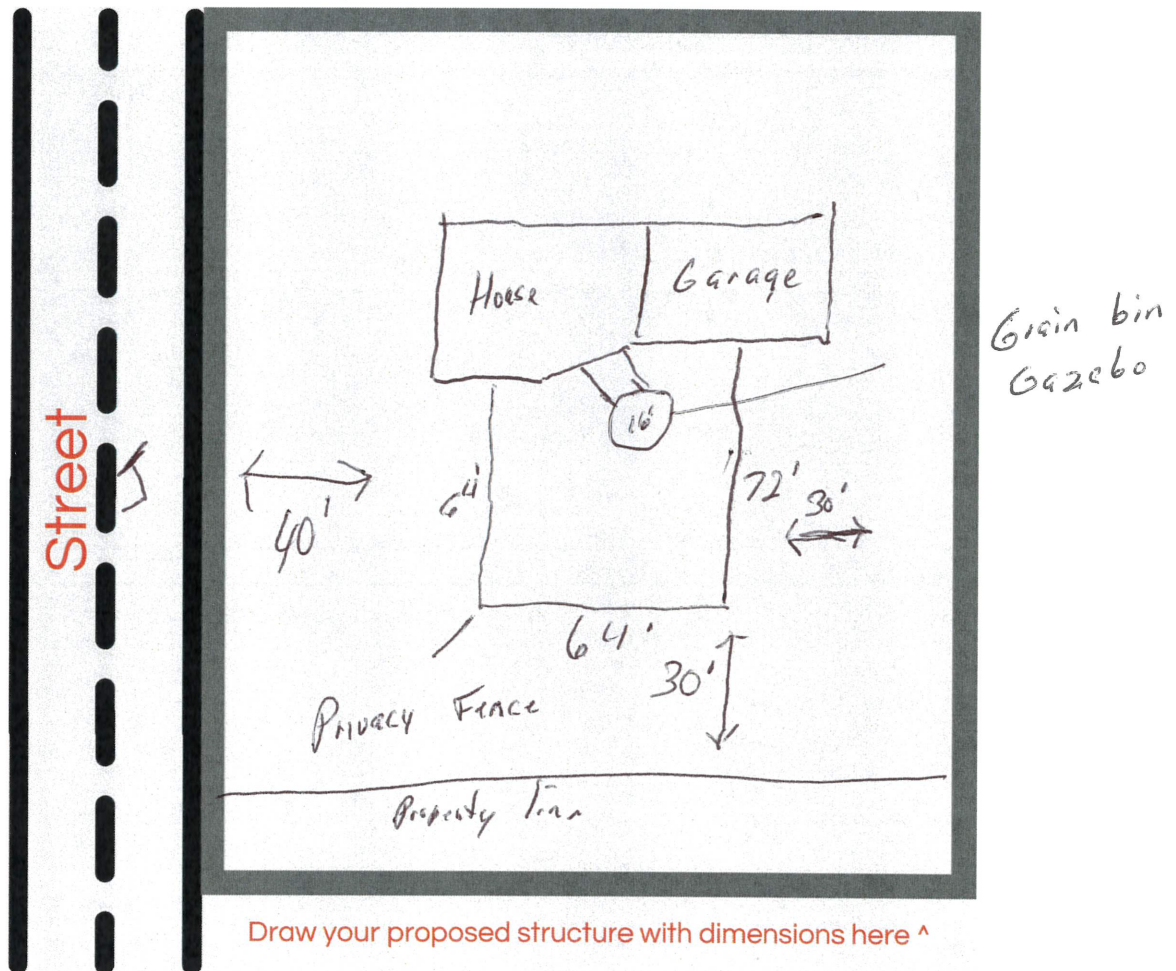 House
Garage
Grain bin
Gazebo
16'
Street
64'
72'
30'
40'
64'
30'
Privacy Fence
Property
Draw your proposed structure with dimensions here ^